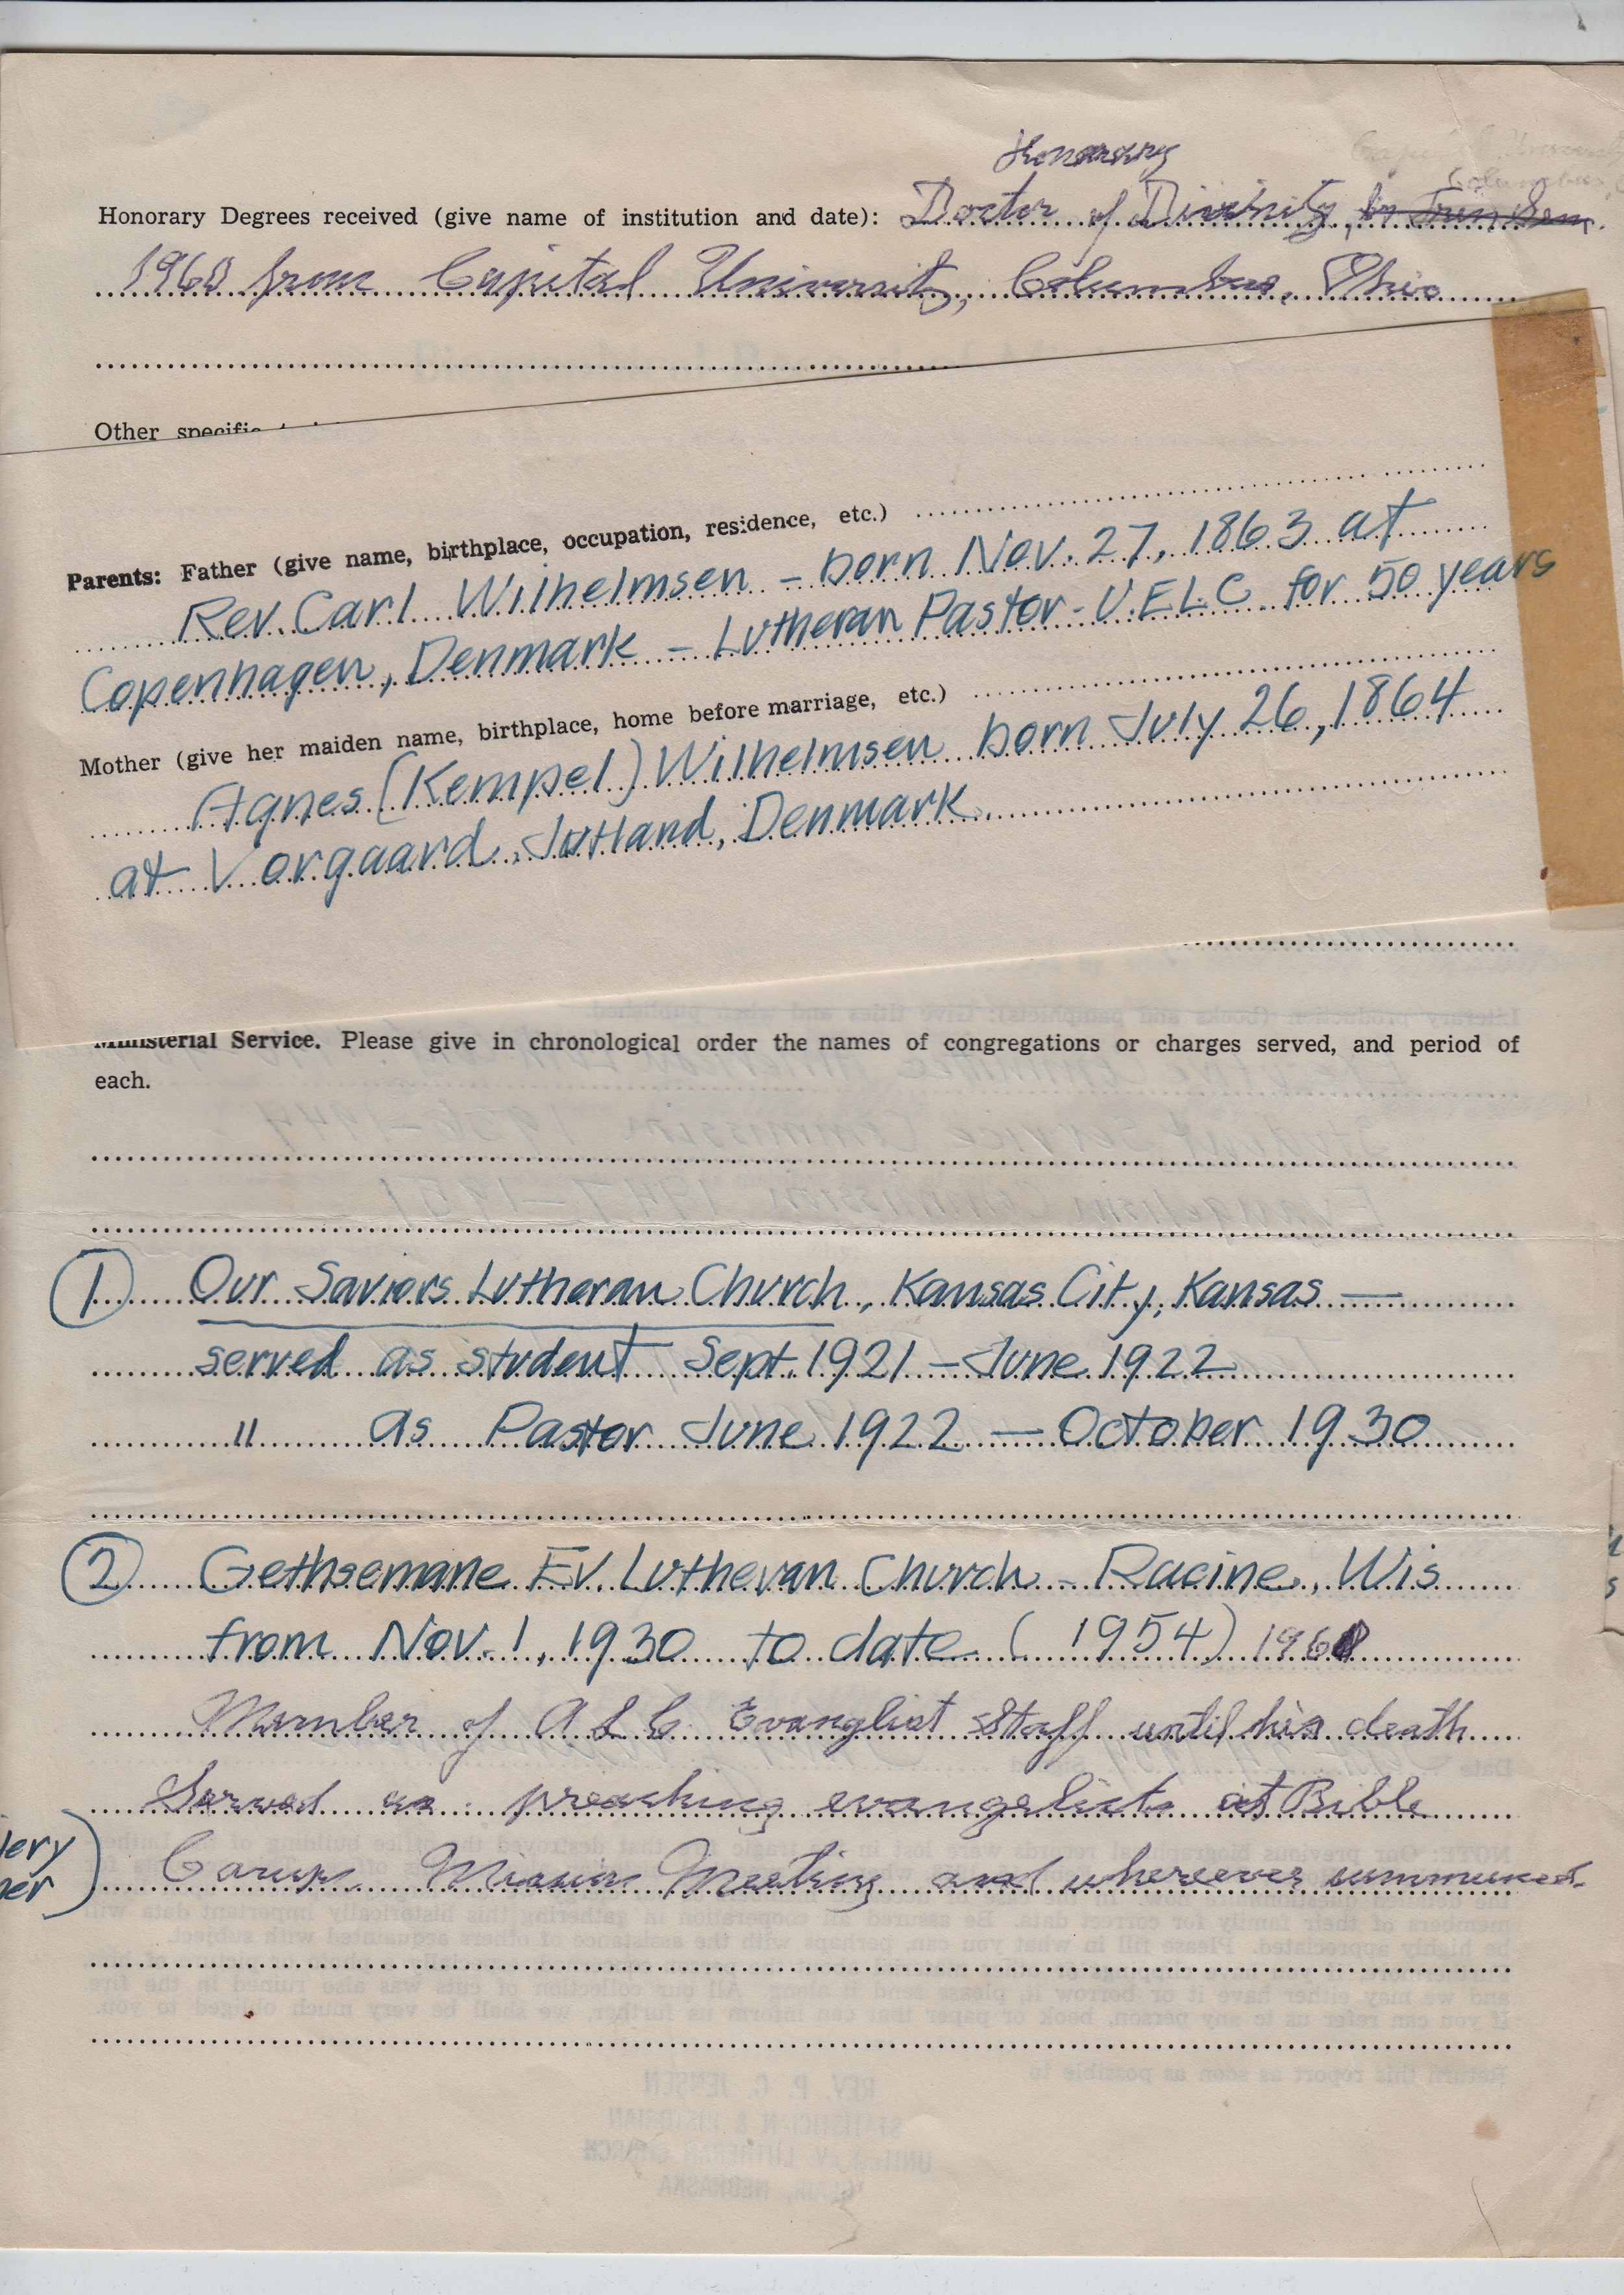 Honorary
Honorary Degrees received (give name of institution and date): Doctor of Divinity, by Trin. Sem.
1960 from Capital University, Columbus, Ohio
Other specific
Parents: Father (give name, birthplace, occupation, residence, etc.)
Rev. Carl Wilhelmsen - born Nov. 27, 1863 at
Copenhagen, Denmark - Lutheran Pastor - U.E.L.C for 50 years
Mother (give her maiden name, birthplace, home before marriage, etc.)
Agnes (Kempel) Wilhelmsen born July 26, 1864
at Vorgaard, Jutland, Denmark.
Ministerial Service. Please give in chronological order the names of congregations or charges served, and period of
each.
1 Our Saviors Lutheran Church, Kansas City, Kansas —
served as student Sept. 1921 - June 1922
" as Pastor June 1922 — October 1930
2 Gethsemane Ev. Lutheran Church - Racine, Wis
from Nov. 1, 1930 to date (1954) 1960
Member of A L C. Evanglist Staff until his death
Served as preaching evangelist at Bible
Camps Mission Meeting and whereever summuned.